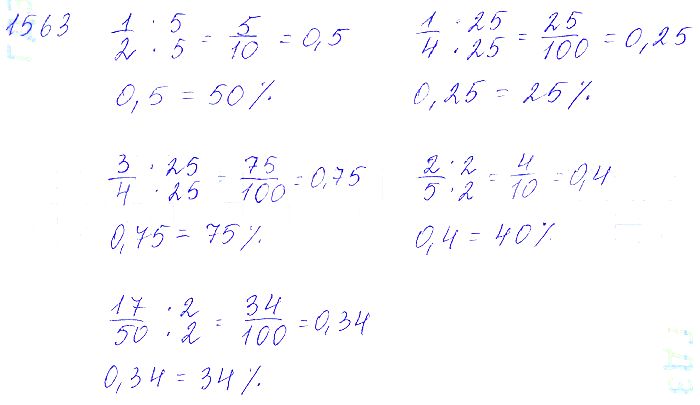 1563
1/2 · 5/5 = 5/10 = 0,5
0,5 = 50%.
1/4 · 25/25 = 25/100 = 0,25
0,25 = 25%.
3/4 · 25/25 = 75/100 = 0,75
0,75 = 75%.
2/5 · 2/2 = 4/10 = 0,4
0,4 = 40%.
17/50 · 2/2 = 34/100 = 0,34
0,34 = 34%.